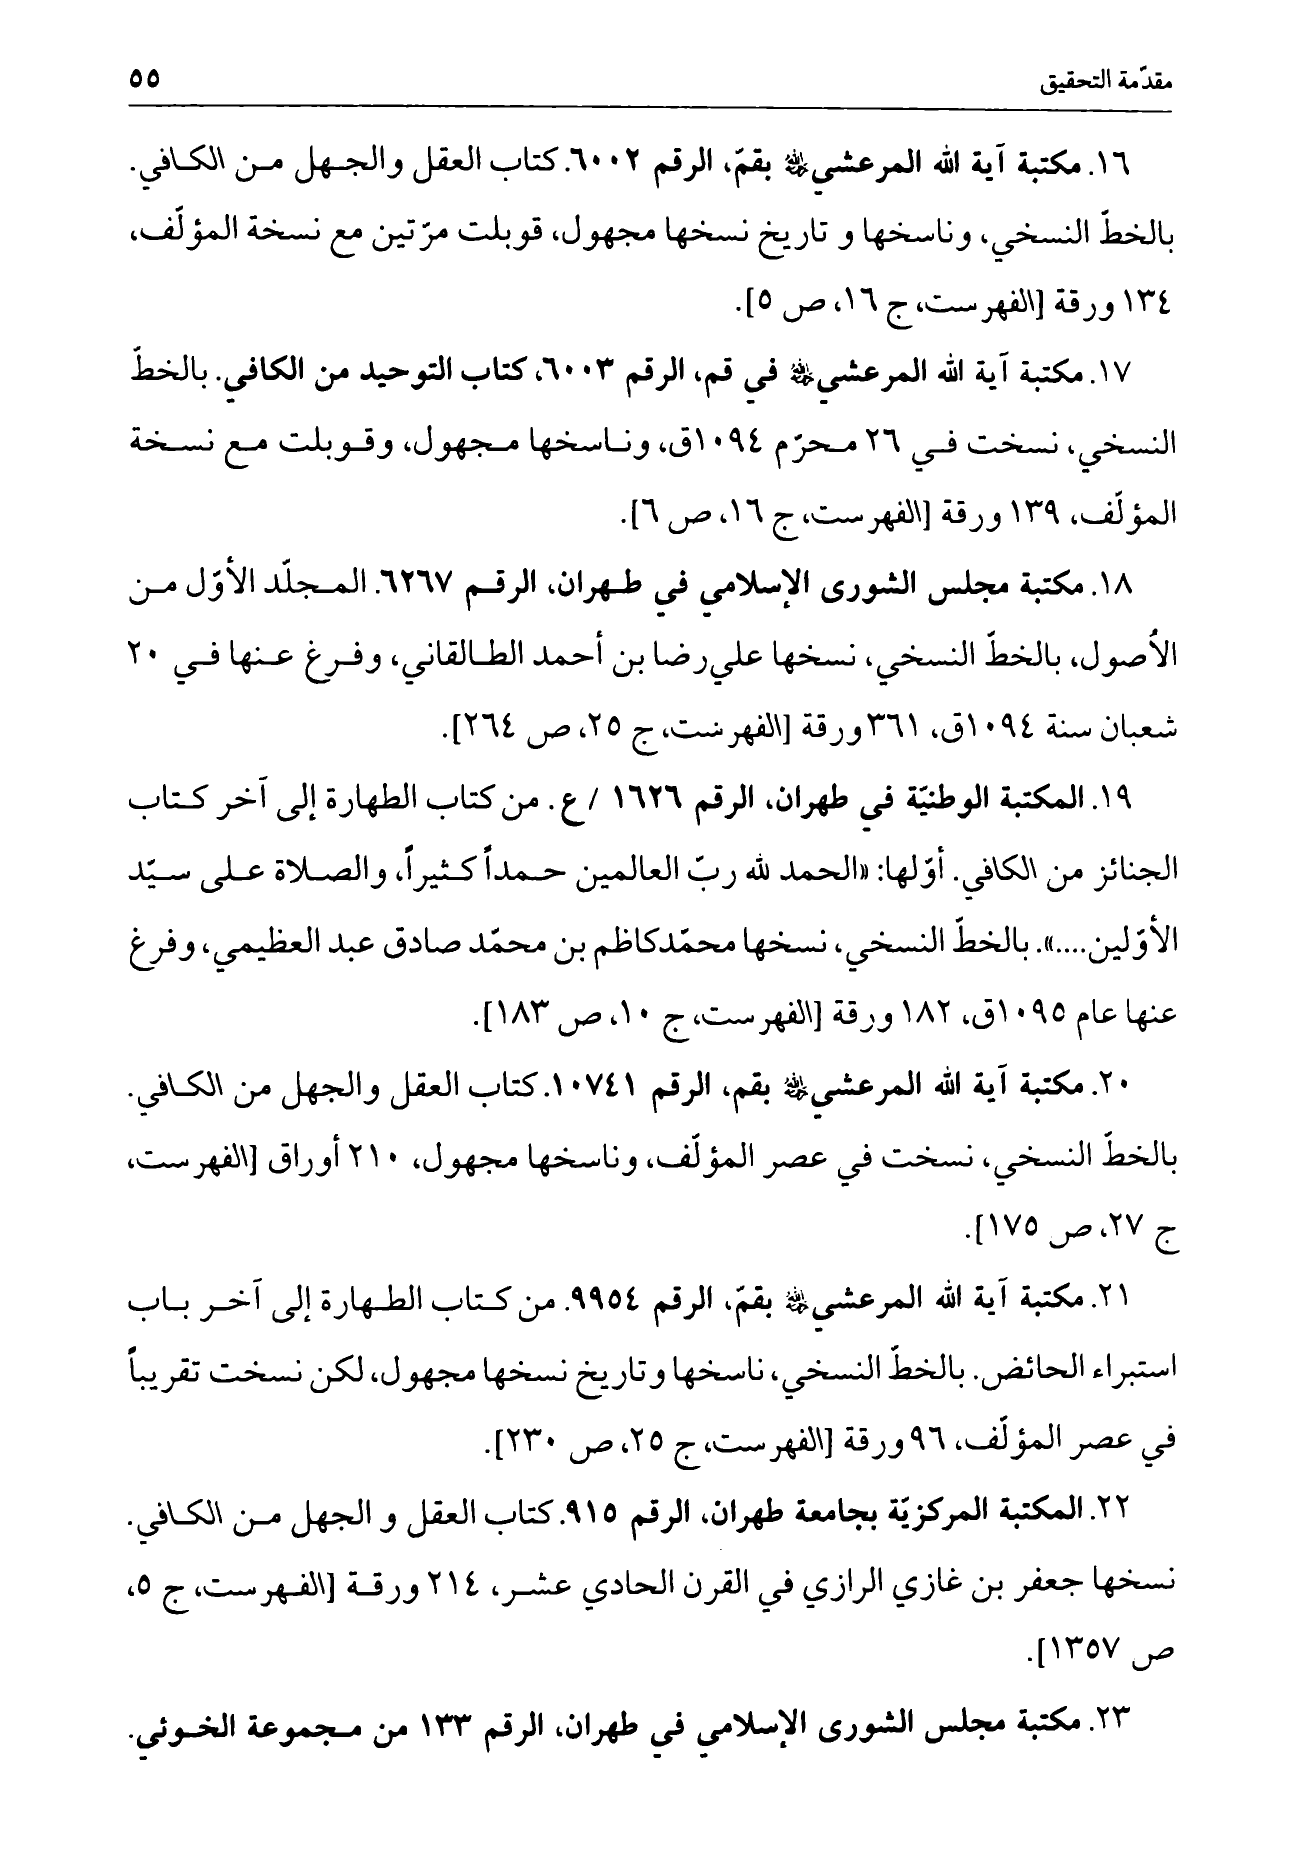 مقدّمة التحقيق ٥٥
١٦. مكتبة آية الله المرعشي بقمّ، الرقم ٦٠٠٢. كتاب العقل والجهل من الكافي.
بالخطّ النسخي، وناسخها و تاريخ نسخها مجهول، قوبلت مرّتين مع نسخة المؤلّف،
١٣٤ ورقة [الفهرست، ج ١٦، ص ٥].
١٧. مكتبة آية الله المرعشي في قم، الرقم ٦٠٠٣، كتاب التوحيد من الكافي. بالخطّ
النسخي، نسخت في ٢٦ محرّم ١٠٩٤ق، وناسخها مجهول، وقوبلت مع نسخة
المؤلّف، ١٣٩ ورقة [الفهرست، ج ١٦، ص ٦].
١٨. مكتبة مجلس الشورى الإسلامي في طهران، الرقم ٦٢٦٧. المجلّد الأوّل من
الأُصول، بالخطّ النسخي، نسخها علي‌رضا بن أحمد الطالقاني، وفرغ عنها في ٢٠
شعبان سنة ١٠٩٤ق، ٣٦١ ورقة [الفهرست، ج ٢٥، ص ٢٦٤].
١٩. المكتبة الوطنيّة في طهران، الرقم ١٦٢٦ / ع. من كتاب الطهارة إلى آخر كتاب
الجنائز من الكافي. أوّلها: «الحمد لله ربّ العالمين حمداً كثيراً، والصلاة على سيّد
الأوّلين....». بالخطّ النسخي، نسخها محمّدكاظم بن محمّد صادق عبد العظيمي، وفرغ
عنها عام ١٠٩٥ق، ١٨٢ ورقة [الفهرست، ج ١٠، ص ١٨٣].
٢٠. مكتبة آية الله المرعشي بقم، الرقم ١٠٧٤١. كتاب العقل والجهل من الكافي.
بالخطّ النسخي، نسخت في عصر المؤلّف، وناسخها مجهول، ٢١٠ أوراق [الفهرست،
ج ٢٧، ص ١٧٥].
٢١. مكتبة آية الله المرعشي بقمّ، الرقم ٩٩٥٤. من كتاب الطهارة إلى آخر باب
استبراء الحائض. بالخطّ النسخي، ناسخها وتاريخ نسخها مجهول، لكن نسخت تقريباً
في عصر المؤلّف، ٩٦ ورقة [الفهرست، ج ٢٥، ص ٢٣٠].
٢٢. المكتبة المركزيّة بجامعة طهران، الرقم ٩١٥. كتاب العقل و الجهل من الكافي.
نسخها جعفر بن غازي الرازي في القرن الحادي عشر، ٢١٤ ورقة [الفهرست، ج ٥،
ص ١٣٥٧].
٢٣. مكتبة مجلس الشورى الإسلامي في طهران، الرقم ١٣٣ من مجموعة الخوئي.